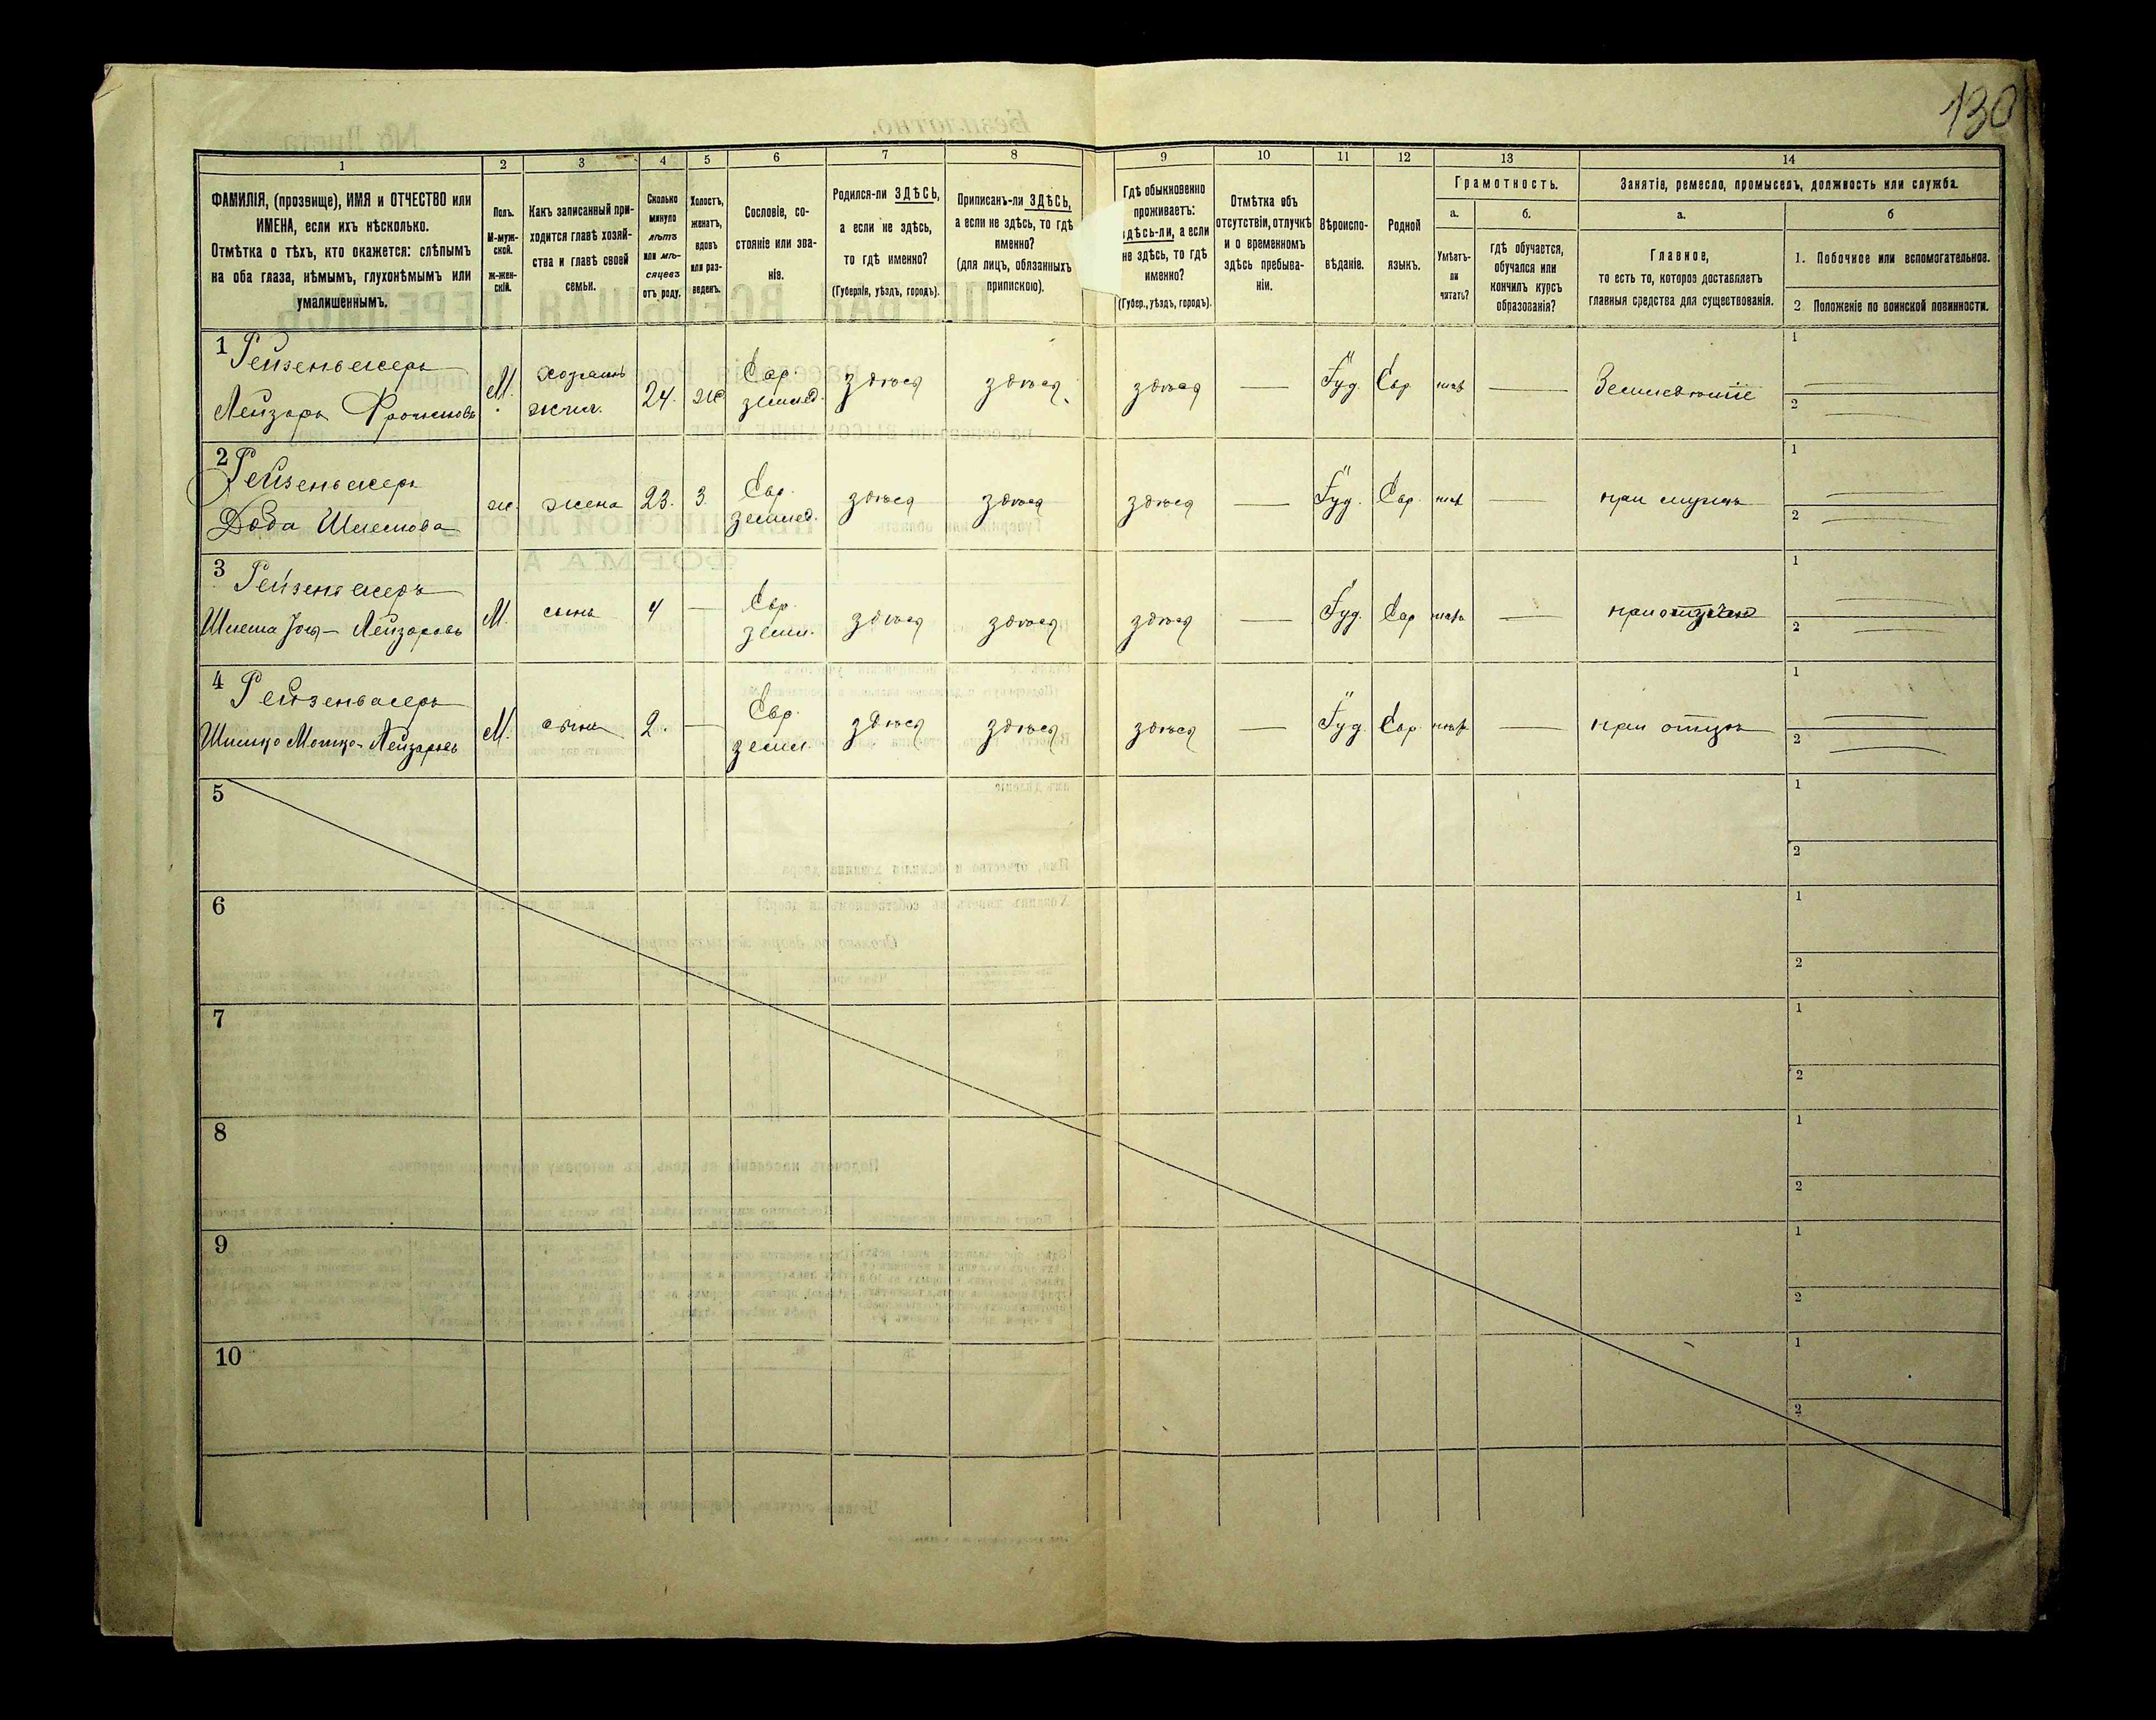 130
1
2
3
4
5
6
7
8
9
10
11
12
13
14
ФАМИЛІЯ, (прозвище), ИМЯ и ОТЧЕСТВО или
ИМЕНА, если ихъ нѣсколько.
Отмѣтка о тѣхъ, кто окажется: слѣпымъ
на оба глаза, нѣмымъ, глухонѣмымъ или
умалишеннымъ.
Полъ.
М-муж-
ской.
ж-жен-
скій.
Какъ записанный при-
ходится главѣ хозяй-
ства и главѣ своей
семьи.
Сколько
минуло
лѣтъ
или мѣ-
сяцевъ
отъ роду.
Холостъ,
женатъ,
вдовъ
или раз-
веденъ.
Сословіе, со-
стояніе или зва-
ніе.
Родился-ли ЗДѢСЬ,
а если не здѣсь,
то гдѣ именно?
(Губернія, уѣздъ, городъ).
Приписанъ-ли ЗДѢСЬ,
а если не здѣсь, то гдѣ
именно?
(для лицъ, обязанныхъ
припискою).
Гдѣ обыкновенно
проживаетъ:
здѣсь-ли, а если
не здѣсь, то гдѣ
именно?
(Губер., уѣздъ, городъ).
Отмѣтка объ
отсутствіи, отлучкѣ
и о временномъ
здѣсь пребыва-
ніи.
Вѣроиспо-
вѣданіе.
Родной
языкъ.
Грамотность.
а.
б.
Умѣетъ-
ли
читать?
гдѣ обучается,
обучался или
кончилъ курсъ
образованія?
Занятіе, ремесло, промыселъ, должность или служба.
а.
б
Главное,
то есть то, которое доставляетъ
главныя средства для существованія.
1. Побочное или вспомогательное.
2. Положеніе по воинской повинности.
1 Рейзенвасеръ
Лейзаръ
М.
хозяинъ
24.
ж
Евр.
землед.
здѣсь
здѣсь
здѣсь
—
Іуд.
Евр
нѣтъ
—
Земледѣліе
1
2
2 Рейзенвасеръ
Доба Шлемова
ж.
жена
23.
З
Евр.
землед.
здѣсь
здѣсь
здѣсь
—
Іуд.
Евр.
нѣтъ
—
при мужѣ
1
2
3 Рейзенвасеръ
Шлема Лейзаровъ
М.
сынъ
4
—
Евр.
земл.
здѣсь
здѣсь
здѣсь
—
Іуд.
Евр
нѣтъ
—
при отцѣ
1
2
4 Рейзенвасеръ
Шимко Мошко-Лейзаровъ
М.
сынъ
2.
—
Евр.
земл.
здѣсь
здѣсь
здѣсь
—
Іуд.
Евр
нѣтъ
—
при отцѣ
1
2
5
1
2
6
1
2
7
1
2
8
1
2
9
1
2
10
1
2